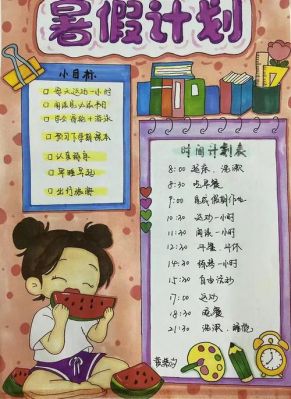 暑假计划
小目标
每天运动一小时
学习下学期课本
认真预习
早睡早起
出行旅游
时间计划表
8:00 起床、洗漱
8:30 吃早餐
9:00 完成假期作业
10:30 运动一小时
11:30 阅读一小时
12:30 午餐、午休
14:30 练琴一小时
15:30 自由活动
17:00 运动
18:30 晚餐
21:30 洗漱、睡觉